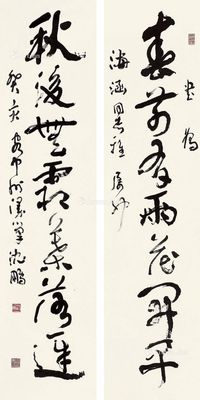 春前有雨花開早
書為
海涵同志雅屬
秋後無霜葉落遲
癸亥 沈鵬